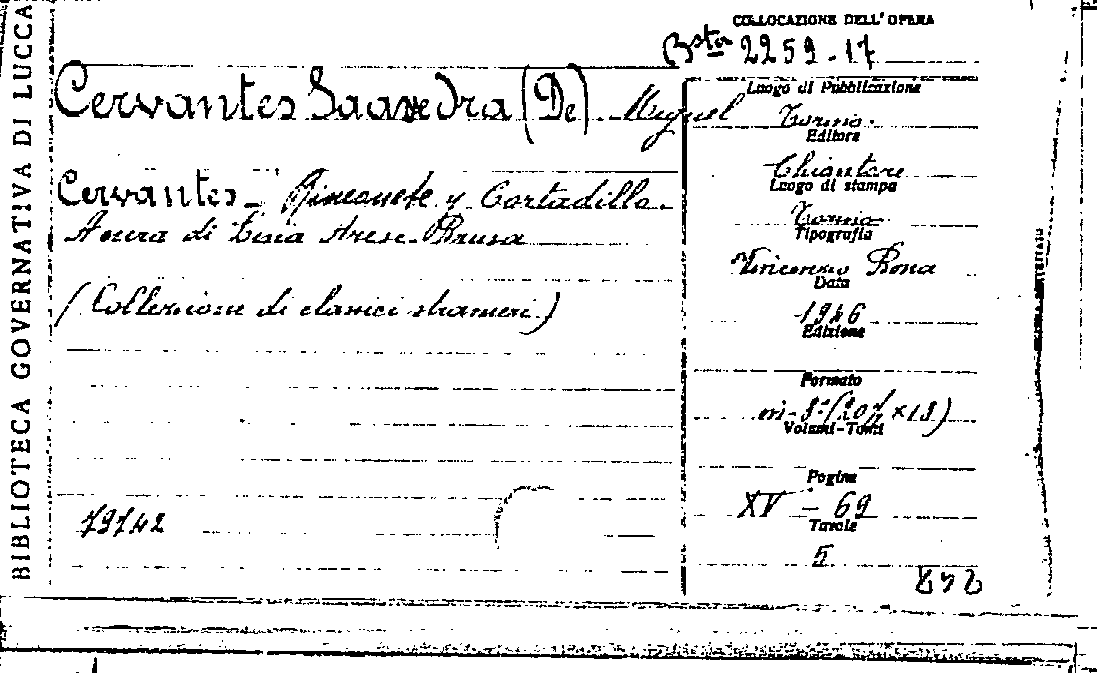 BIBLIOTECA GOVERNATIVA DI LUCCA
COLLOCAZIONE DELL'OPERA
Bsta 2259-17
Cervantes Saavedra (De) Miguel
Cervantes - Rinconete y Cortadillo.
A cura di
(Collezione di classici stranieri)
19142
Luogo di Pubblicazione
Torino.
Editore
Chiantore
Luogo di stampa
Torino
Tipografia
Vincenzo Bona
Data
Edizione
Formato
in-8°
Volumi-Tomi
Pagine
XV - 69
Tavole
5